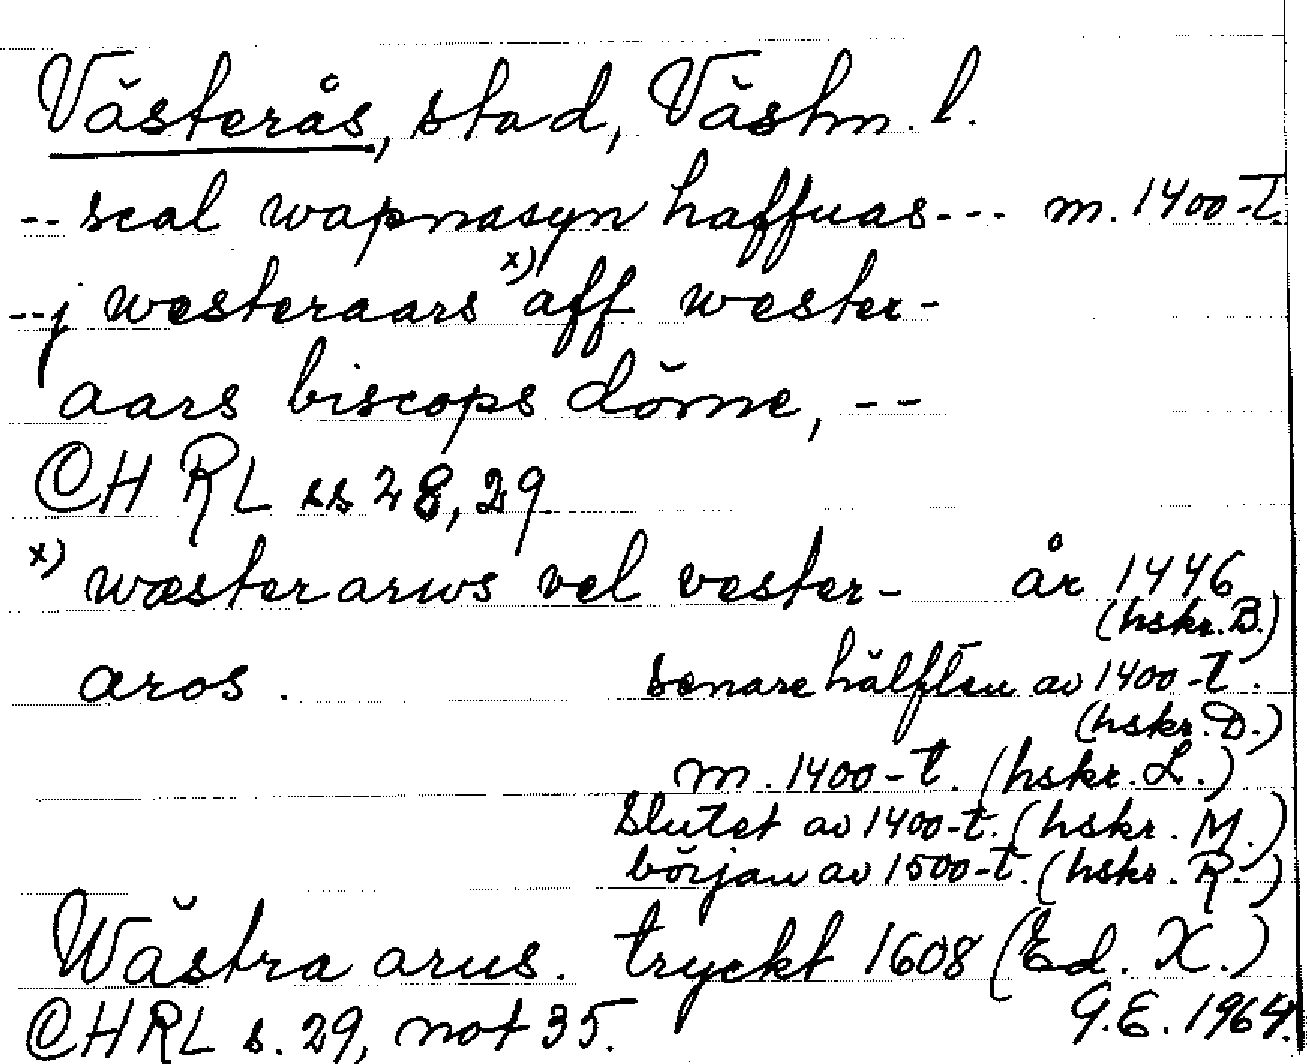 Västerås, stad, Västm. l.
-- scal wapnasyn haffuas --- m. 1400-t.
-- j westeraars x) aff wester-
aars biscops döme, --
CHRL ss 28, 29
x) wæster arws vel vester- år 1446
(hskr. B.)
aros. senare hälften av 1400-t.
(hskr. D.)
m. 1400-t. (hskr. L.)
Slutet av 1400-t. (hskr. M.)
början av 1500-t. (hskr. R.)
Wästra arus. tryckt 1608 (Ed. X.)
CHRL s. 29, not 35. G.E. 1964.